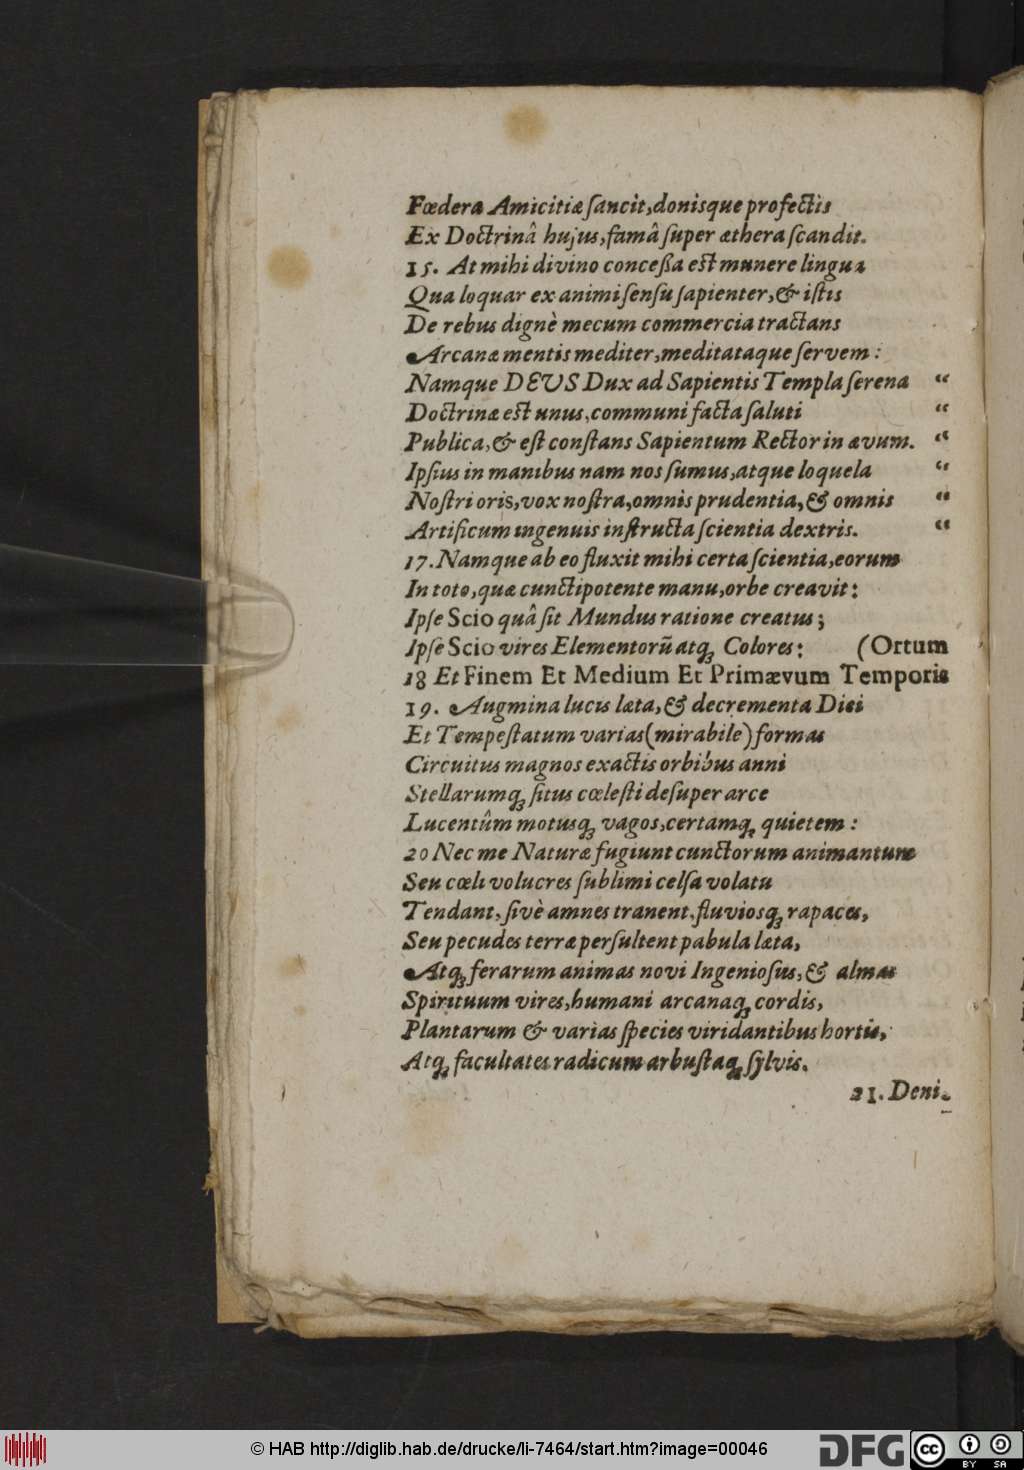 Fœdera Amicitiæ ſancit, donisque profectis
Ex Doctrinâ hujus, famâ ſuper æthera ſcandit.
15. At mihi divino conceßa eſt munere lingua
Qua loquar ex animi ſenſu ſapienter, & iſtis
De rebus dignè mecum commercia tractans
Arcanæ mentis mediter, meditataque ſervem:
Namque DEUS Dux ad Sapientis Templa ſerena “
Doctrinæ eſt unus, communi facta ſaluti “
Publica, & eſt conſtans Sapientum Rector in ævum. “
Ipſius in manibus nam nos ſumus, atque loquela “
Noſtri oris, vox noſtra, omnis prudentia, & omnis “
Artificum ingenuis inſtructa ſcientia dextris. “
17. Namque ab eo fluxit mihi certa ſcientia, eorum
In toto, quæ cunctipotente manu, orbe creavit:
Ipſe Scio quâ ſit Mundus ratione creatus;
Ipſe Scio vires Elementorũ atqꝫ Colores: (Ortum
18 Et Finem Et Medium Et Primævum Temporis
19. Augmina lucis læta, & decrementa Diei
Et Tempeſtatum varias (mirabile) formas
Circuitus magnos exactis orbibus anni
Stellarumqꝫ ſitus cœleſti deſuper arce
Lucentûm motusqꝫ vagos, certamqꝫ quietem:
20 Nec me Naturæ fugiunt cunctorum animantum
Seu cœli volucres ſublimi celſa volatu
Tendant, ſivè amnes tranent, fluviosqꝫ rapaces,
Seu pecudes terræ perſultent pabula læta,
Atqꝫ ferarum animas novi Ingenioſus, & almas
Spirituum vires, humani arcanaqꝫ cordis,
Plantarum & varias ſpecies viridantibus hortis,
Atqꝫ facultates radicum arbuſtaqꝫ ſylvis.
21. Deni-
© HAB http://diglib.hab.de/drucke/li-7464/start.htm?image=00046
DFG
cc BY SA